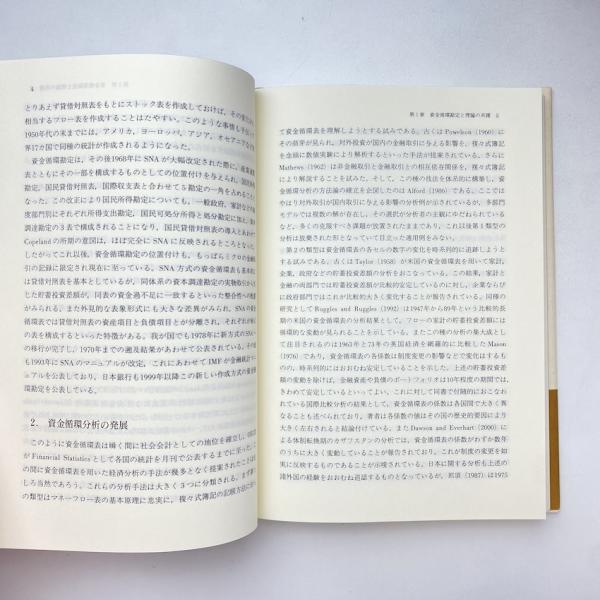 4
とりあえず貸借対照表をもとにストック表を作成しておけば、その
相当するフロー表を作成することはたやすい。このような事情も手伝
1950年代の末までには、アメリカ、ヨーロッパ、アジア、オセアニアなど
世界17カ国で同種の統計が作成されるようになった。
資金循環勘定は、その後1968年にSNAが大幅改定された際に、産業連関
表とともにその一部を構成するものとしての位置付けを与えられ、国民所得勘
定、国民貸借対照表、国際収支表と合わせて5勘定の一角を占めること
なった。この改正により国民所得勘定についても、一般政府、家計などの
度部門別にそれぞれ所得支出勘定、国民可処分所得と処分勘定に加え、資本
調達勘定の3表で構成されることになり、国民貸借対照表の導入とあわせて
Copelandの所期の意図は、ほぼ完全にSNAに反映されるところとなった。
したがってこれ以後、資金循環勘定の位置付けも、もっぱらミクロの金融取引
の記録に限定され現在に至っている。SNA方式の資金循環勘定も基本的に
は貸借対照表を基本としているが、同体系の資本調達勘定の実物取引から導
した貯蓄投資差額が、同表の資金過不足に一致するといった整合性への配慮
がみられる。また外見的な表象形式にも大きな差異がみられ、SNAの資金循
環表では貸借対照表の資産項目と負債項目とが分離され、それぞれが単独
の表を構成するといった特徴がある。我が国でも1978年に新SNA方式へ
の移行が完了し、1970年までの遡及結果があわせて公表されている。その
も1993年にSNAのマニュアルが改定、これにあわせてIMFが金融統計マニ
ュアルを公表しており、日本銀行も1999年以降この新しい作成方式の資金循
環勘定を公表している。
2. 資金循環分析の発展
このように資金循環表は瞬く間に社会会計としての地位を確立し、
がFinancial Statisticsとして各国の統計を月刊で公表するまでに至った。
の間に資金循環表を用いた経済分析の手法が幾多となく提案されたことは
しろ当然であろう。これらの分析手法は大きく3つに分類される。まず第1
の類型はマネーフロー表の基本原理に忠実に、複々式簿記の記録方法に
第1章 資金循環勘定と理論の系譜 5
て資金循環表を理解しようとする試みである。古くはPowelson (1960)に
その萌芽が見られ、対外投資が国内の金融取引に与える影響を、複々式簿記
を念頭に数値実験により解析するといった手法が提案されている。さらに
Mathews (1984)は非金融取引と金融取引との相互依存関係を、複々式簿記
により解説することを試みた。そして、この種の技法を体系的に構築し、資
金循環分析の方法論の確立を企図したのはAlford (1986)である。ここでは
やはり対外取引が国内取引に与える影響の分析例が示されているが、多部門
モデルでは複数の解が存在し、その選択が分析者の主観にゆだねられている
など、多くの克服すべき課題が放置されたままであり、これ以後第1類型の
分析は放棄された形となっていて目立った適用例をみない。
第2の類型は資金循環表の各セルの数字の変化を時系列的に追跡しようと
する試みである。古くはTaylor (1958)が米国の資金循環表を用いて家計、
企業、政府などの貯蓄投資差額の分析をおこなっている。この結果、家計と
金融の両部門では貯蓄投資差額が比較的安定しているのに対し、企業ならび
に政府部門ではこれが比較的大きく変化することが報告されている。同種の
研究としてRuggles and Ruggles (1992)は1947年から89年という比較的長
期の米国の資金循環表の分析結果として、フローの家計の貯蓄投資差額には
循環的な変動が見られることを示している。またこの種の分析の集大成とし
て注目されるのは1963年と73年の英国経済を網羅的に比較したMason
(1976)であり、資金循環表の各係数は制度変更の影響などで変化するもも
の、時系列的にはおおむね安定していることを示した。上述の貯蓄投資差
額の変動を除けば、金融資産や負債のポートフォリオは10年程度の期間では、
きわめて安定しているといってよい。これに対して同書で付随的におこなわ
れている国際比較分析の結果として、資金循環表の係数は各国間で大きく異
なることも述べられており、著者は各係数の値はその国の歴史的要因により
大きく左右されると結論付けている。またDawson and Everhart (2000)に
よる体制転換期のカザフスタンの分析では、資金循環表の各係数がわずか数年
のうちに大きく変動していることが報告されており、これが制度の変更を如
実に反映するものであることが示唆されている。日本に関する分析も上述の
諸外国の経験をおおむね追認するものとなっているが、邦須 (1987)は1975